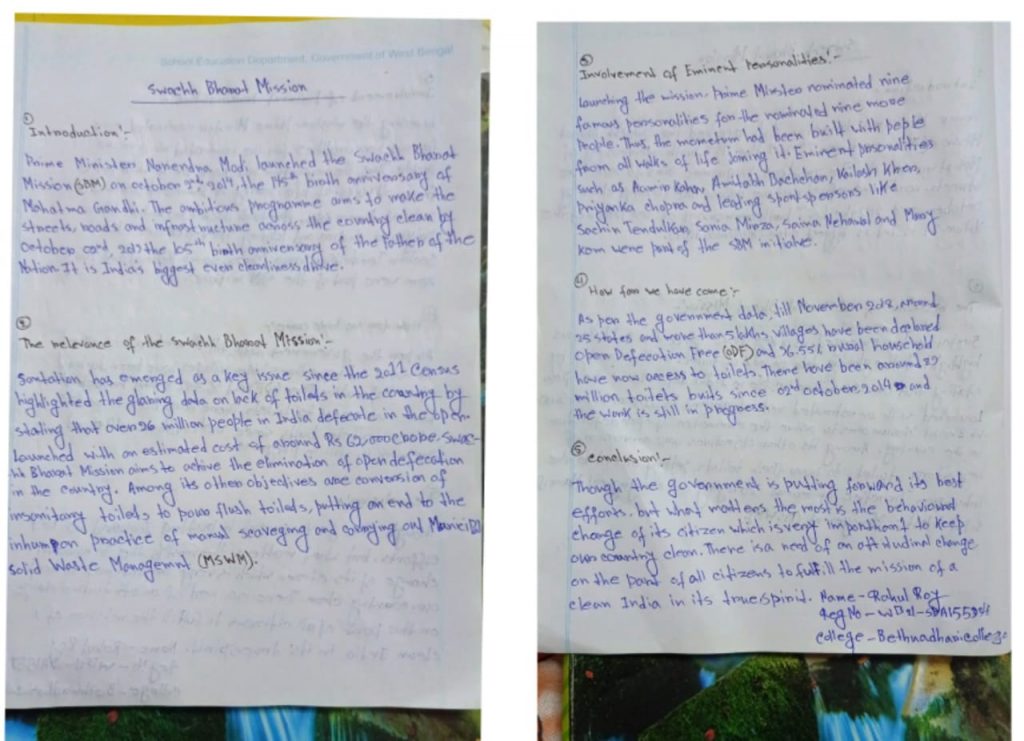 School Education Department, Government of West Bengal
Swachh Bharat Mission
①
Introduction:-
Prime Minister Narendra Modi launched the Swachh Bharat
Mission (SBM) on october 2nd 2014, the 145th birth anniversary of
Mahatma Gandhi. The ambitious programme aims to make the
streets, roads and infrastructure across the country clean by
october 02nd, the birth anniversary of the Father of the
Nation. It is India's biggest ever cleanliness drive.
②
The relevance of the swachh Bharat Mission:-
Sanitation has emerged as a key issue since the 2011 Census
highlighted the glaring data on lack of toilets in the country by
stating that over 26 million people in India defecate in the open.
Launched with an estimated cost of around Rs 62,000 Swac-
hh Bharat Mission aims to achive the elimination of open defecation
in the country. Among its other objectives are conversion of
insanitary toilets to pour flush toilets, putting an end to the
inhuman practice of manual scaveging and carrying out
Solid Waste Managemnt (MSWM).
③
Involvement of Eminent Personalities:-
Launching the mission, Prime nominated nine
famous personalities for the nominated nine more
people. Thus, the had been built with peple
from all walks of life joining it. Eminent
such as Amitabh Bachchan, Kailash Kher,
Priyanka chopra and leading sportspersons like
Sachin Tendulkar, Sania Mirza, Saina and Mary
Kom were part of the SBM
④
How far we have come:-
As per the government data, till November around
25 states and more than 5 lakhs villages have been declared
Open Defecation Free (ODF) and 96.55% rural household
have now access to toilets. There have been around
million toilets built since 02nd october, 2014 and
the work is still in progress.
⑤
Conclusion:-
Though the government is putting forward its best
efforts. but what matters the most is the behavioural
change of its citizen which is very important to keep
our country clean. There is a need of an attitudinal change
on the part of all citizens to fulfill the mission of a
clean India in its true spirit. Name - Rahul Roy
Reg No -
College -